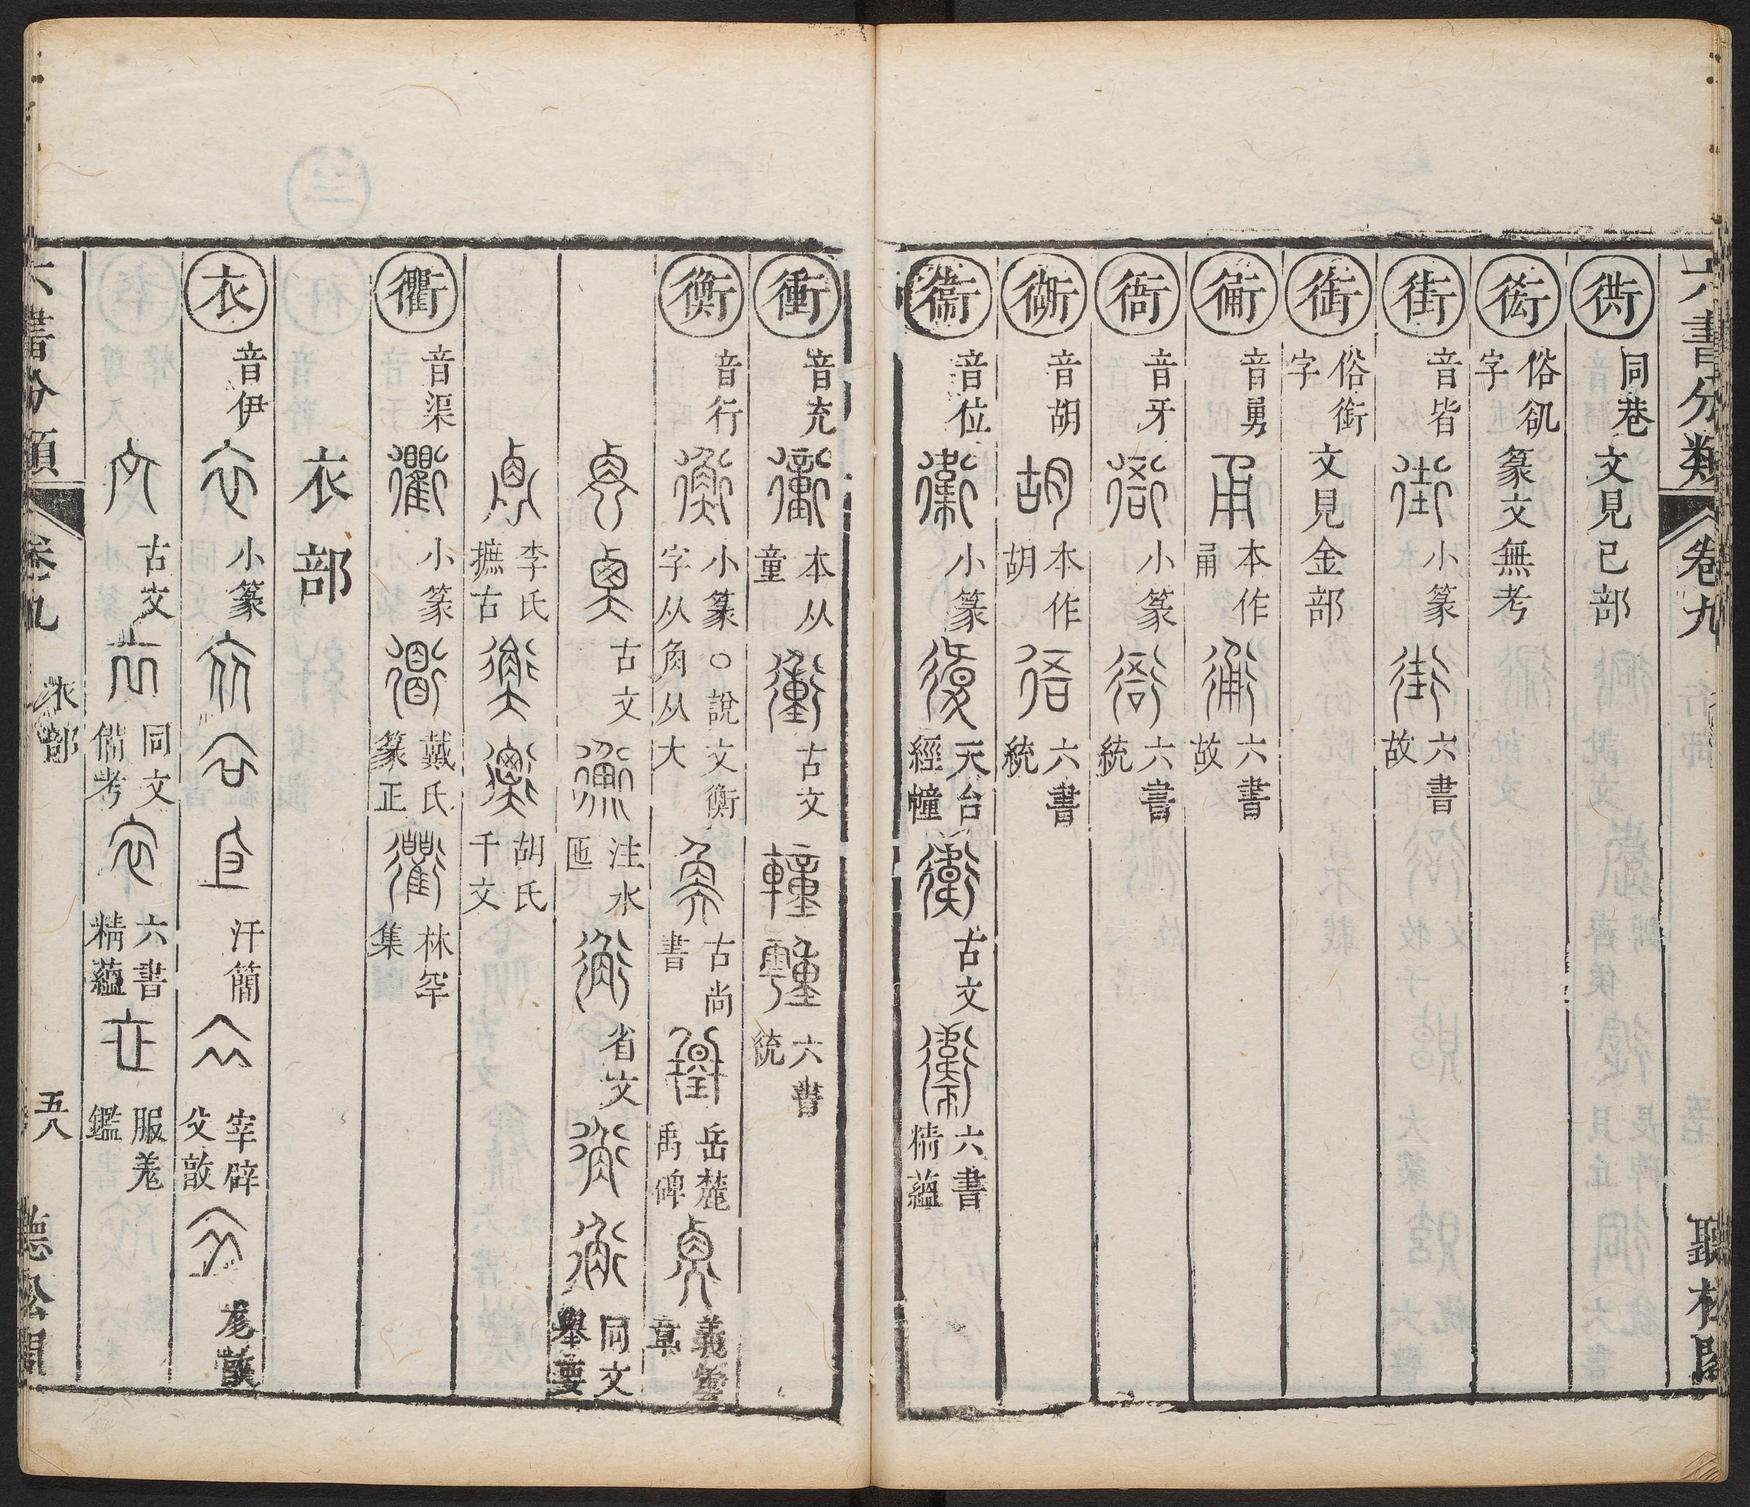 六書分類 卷九 行部 聽松閣
衖 同巷 文見已部
俗㕁字 篆文無考
街 音皆 小篆 六書故
俗銜字 文見金部
音勇 本作甬 六書故
衙 音牙 小篆 六書統
衚 音胡 本作胡 六書統
音位 小篆 天台經幢 古文 六書精蘊
衝 音充 本从童 古文 六書統
衡 音行 小篆○說文衡字从角从大 古尚書 岳麓禹碑 義雲章
古文 注水匜 省文 同文舉要
李氏摭古 胡氏千文
衢 音渠 小篆 戴氏篆正 林罕集
衣部
衣 音伊 小篆 汗簡 宰辟父敦 敦
古文 同文備考 六書精蘊 服鑑
六書分類 卷九 衣部 五八 聽松閣